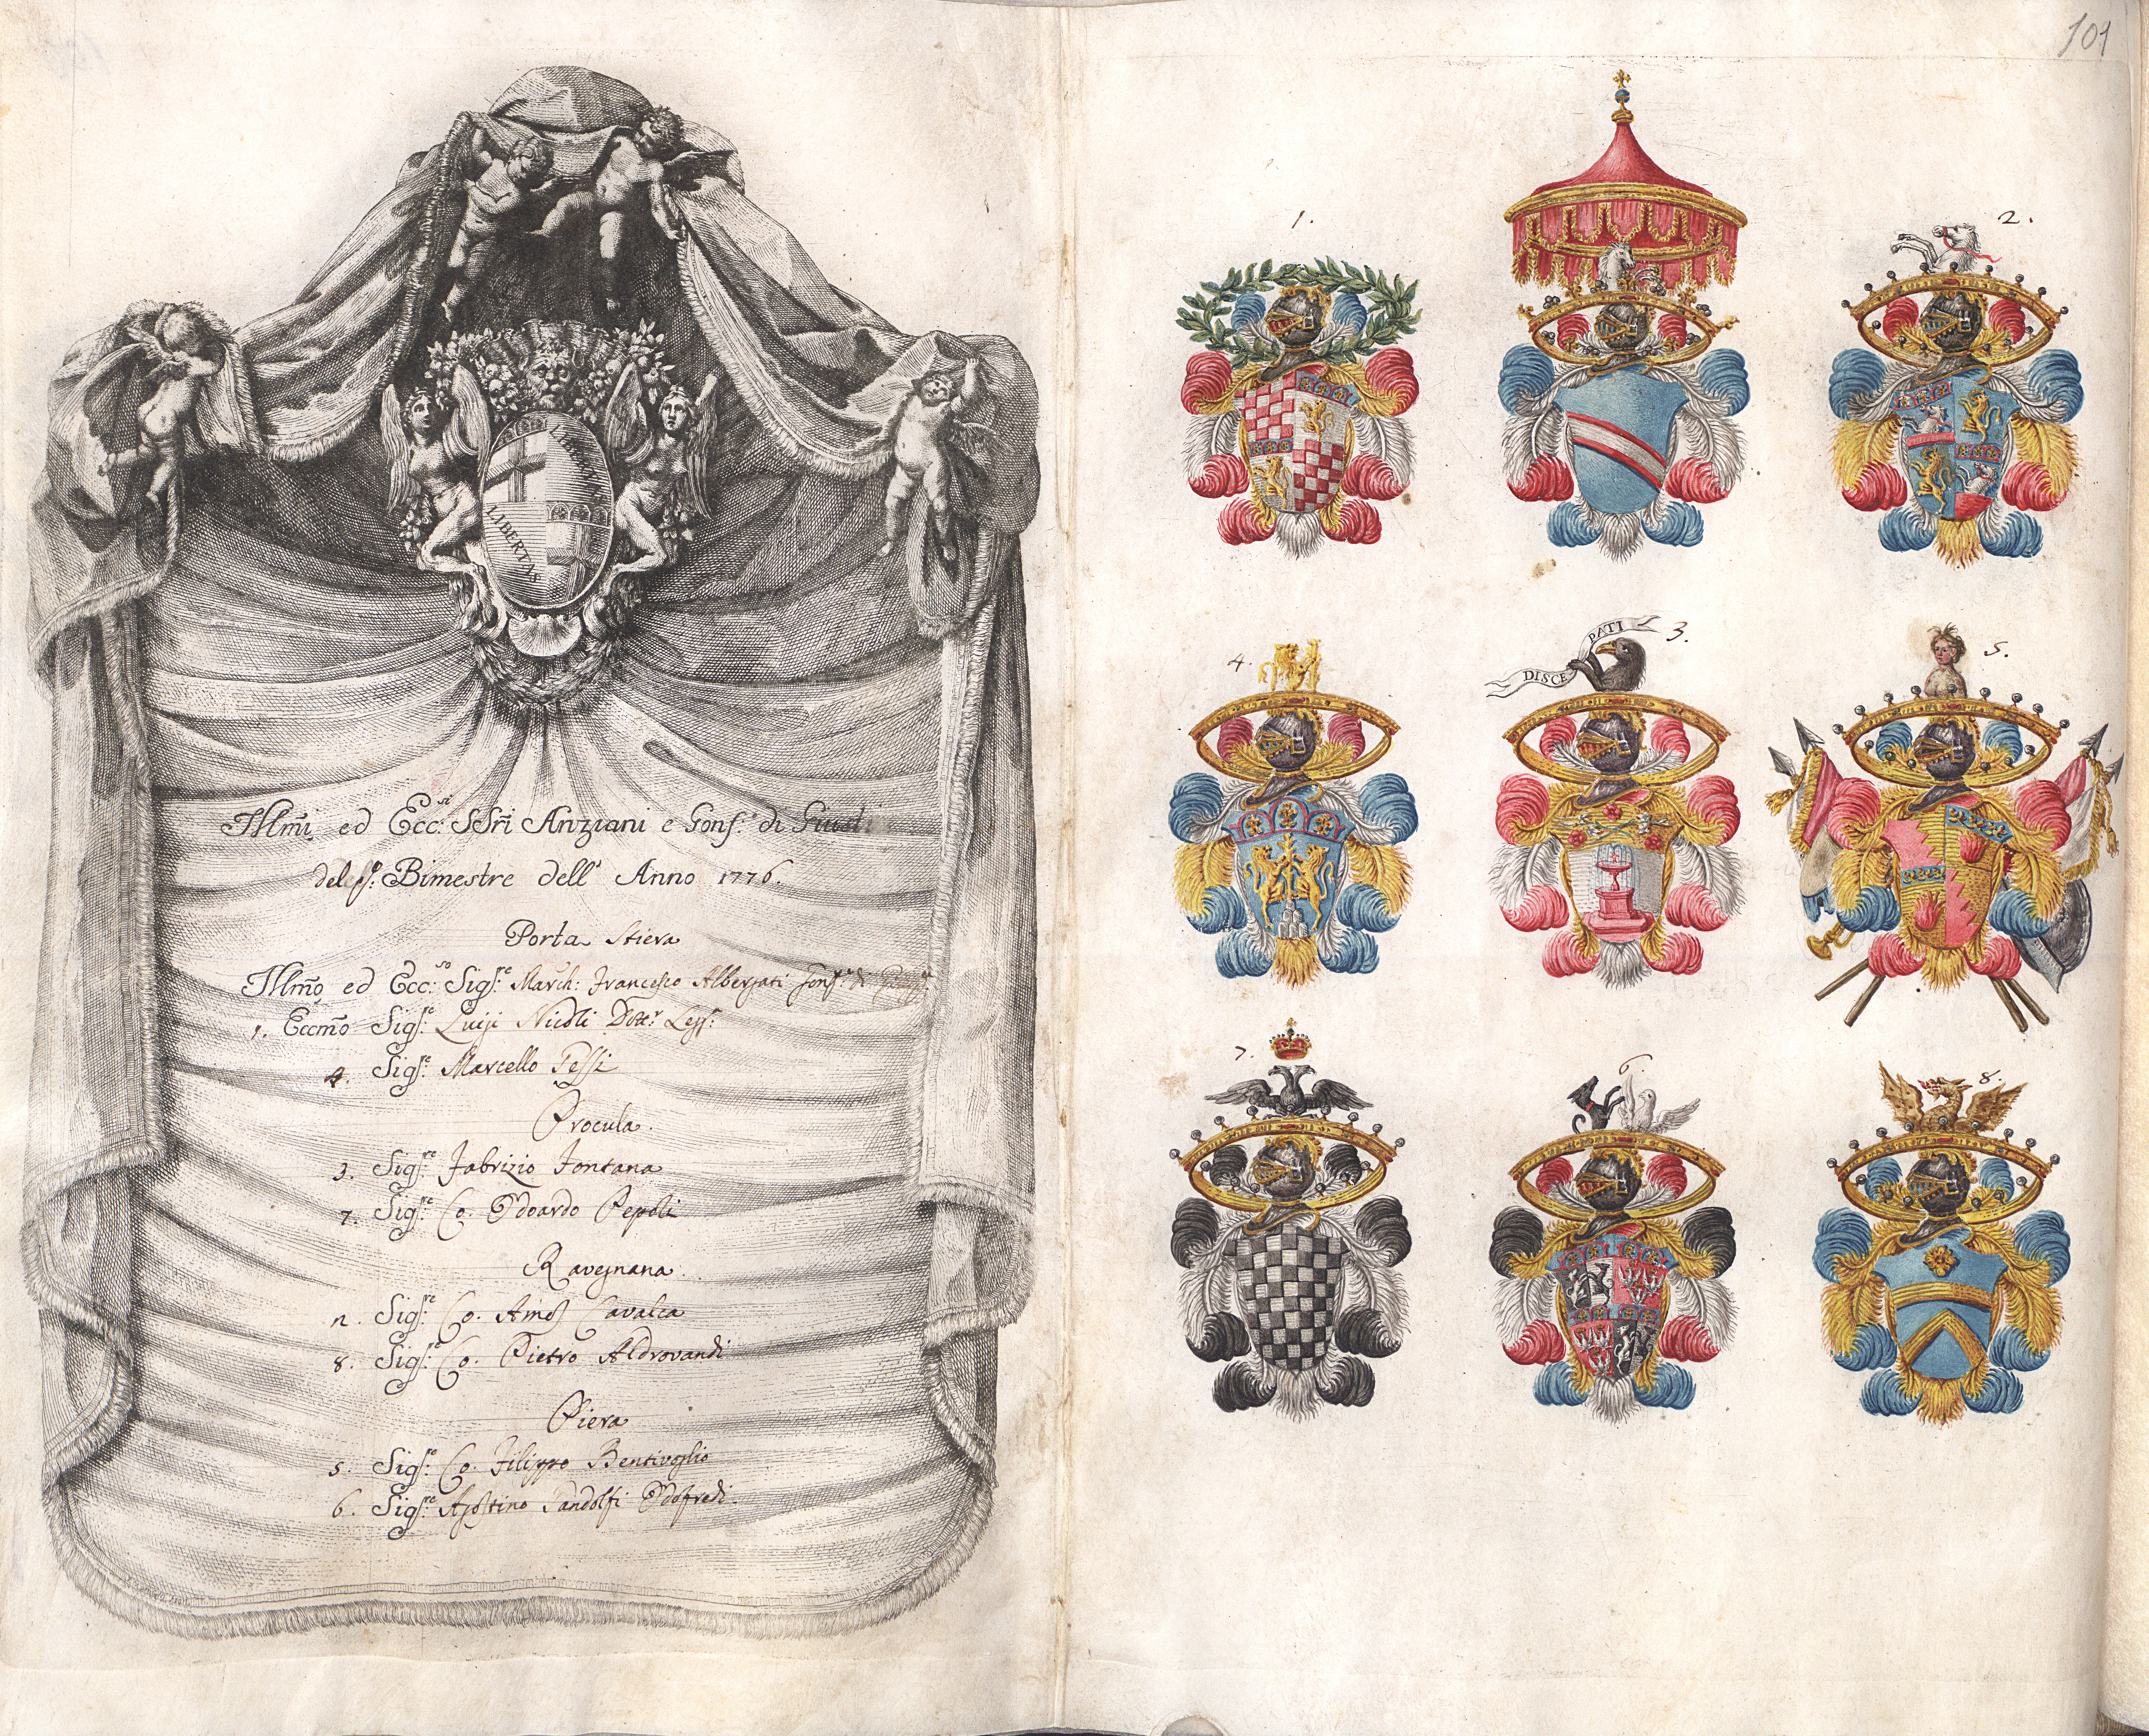 LIBERTAS
LIBERTAS
Illm̃i ed Ecc:si SSri Anziani e Gonf.e di Giusti
del p.o Bimestre dell' Anno 1776.
Porta Stiera
Illm̃o ed Ecc:so Sigr.e March: Francesco Albergati Gonf.e di
1. Eccm̃o Sigr.e Luigi Nicoli Dott.r Legg:
4. Sigr.e Marcello Fessi
Procula.
3. Sigr.e Fabrizio Fontana
7. Sigr.e Co. Odoardo Pepoli
Ravegnana.
2. Sigr.e Co. Cavalca
8. Sigr.e Co. Pietro Aldrovandi
Piera
5. Sigr.e Co. Filippo Bentivoglio
6. Sigr.e Agostino Pandolfi Odofredi.
101
1.
2.
4.
DISCE PATI
3.
5.
7.
6.
8.